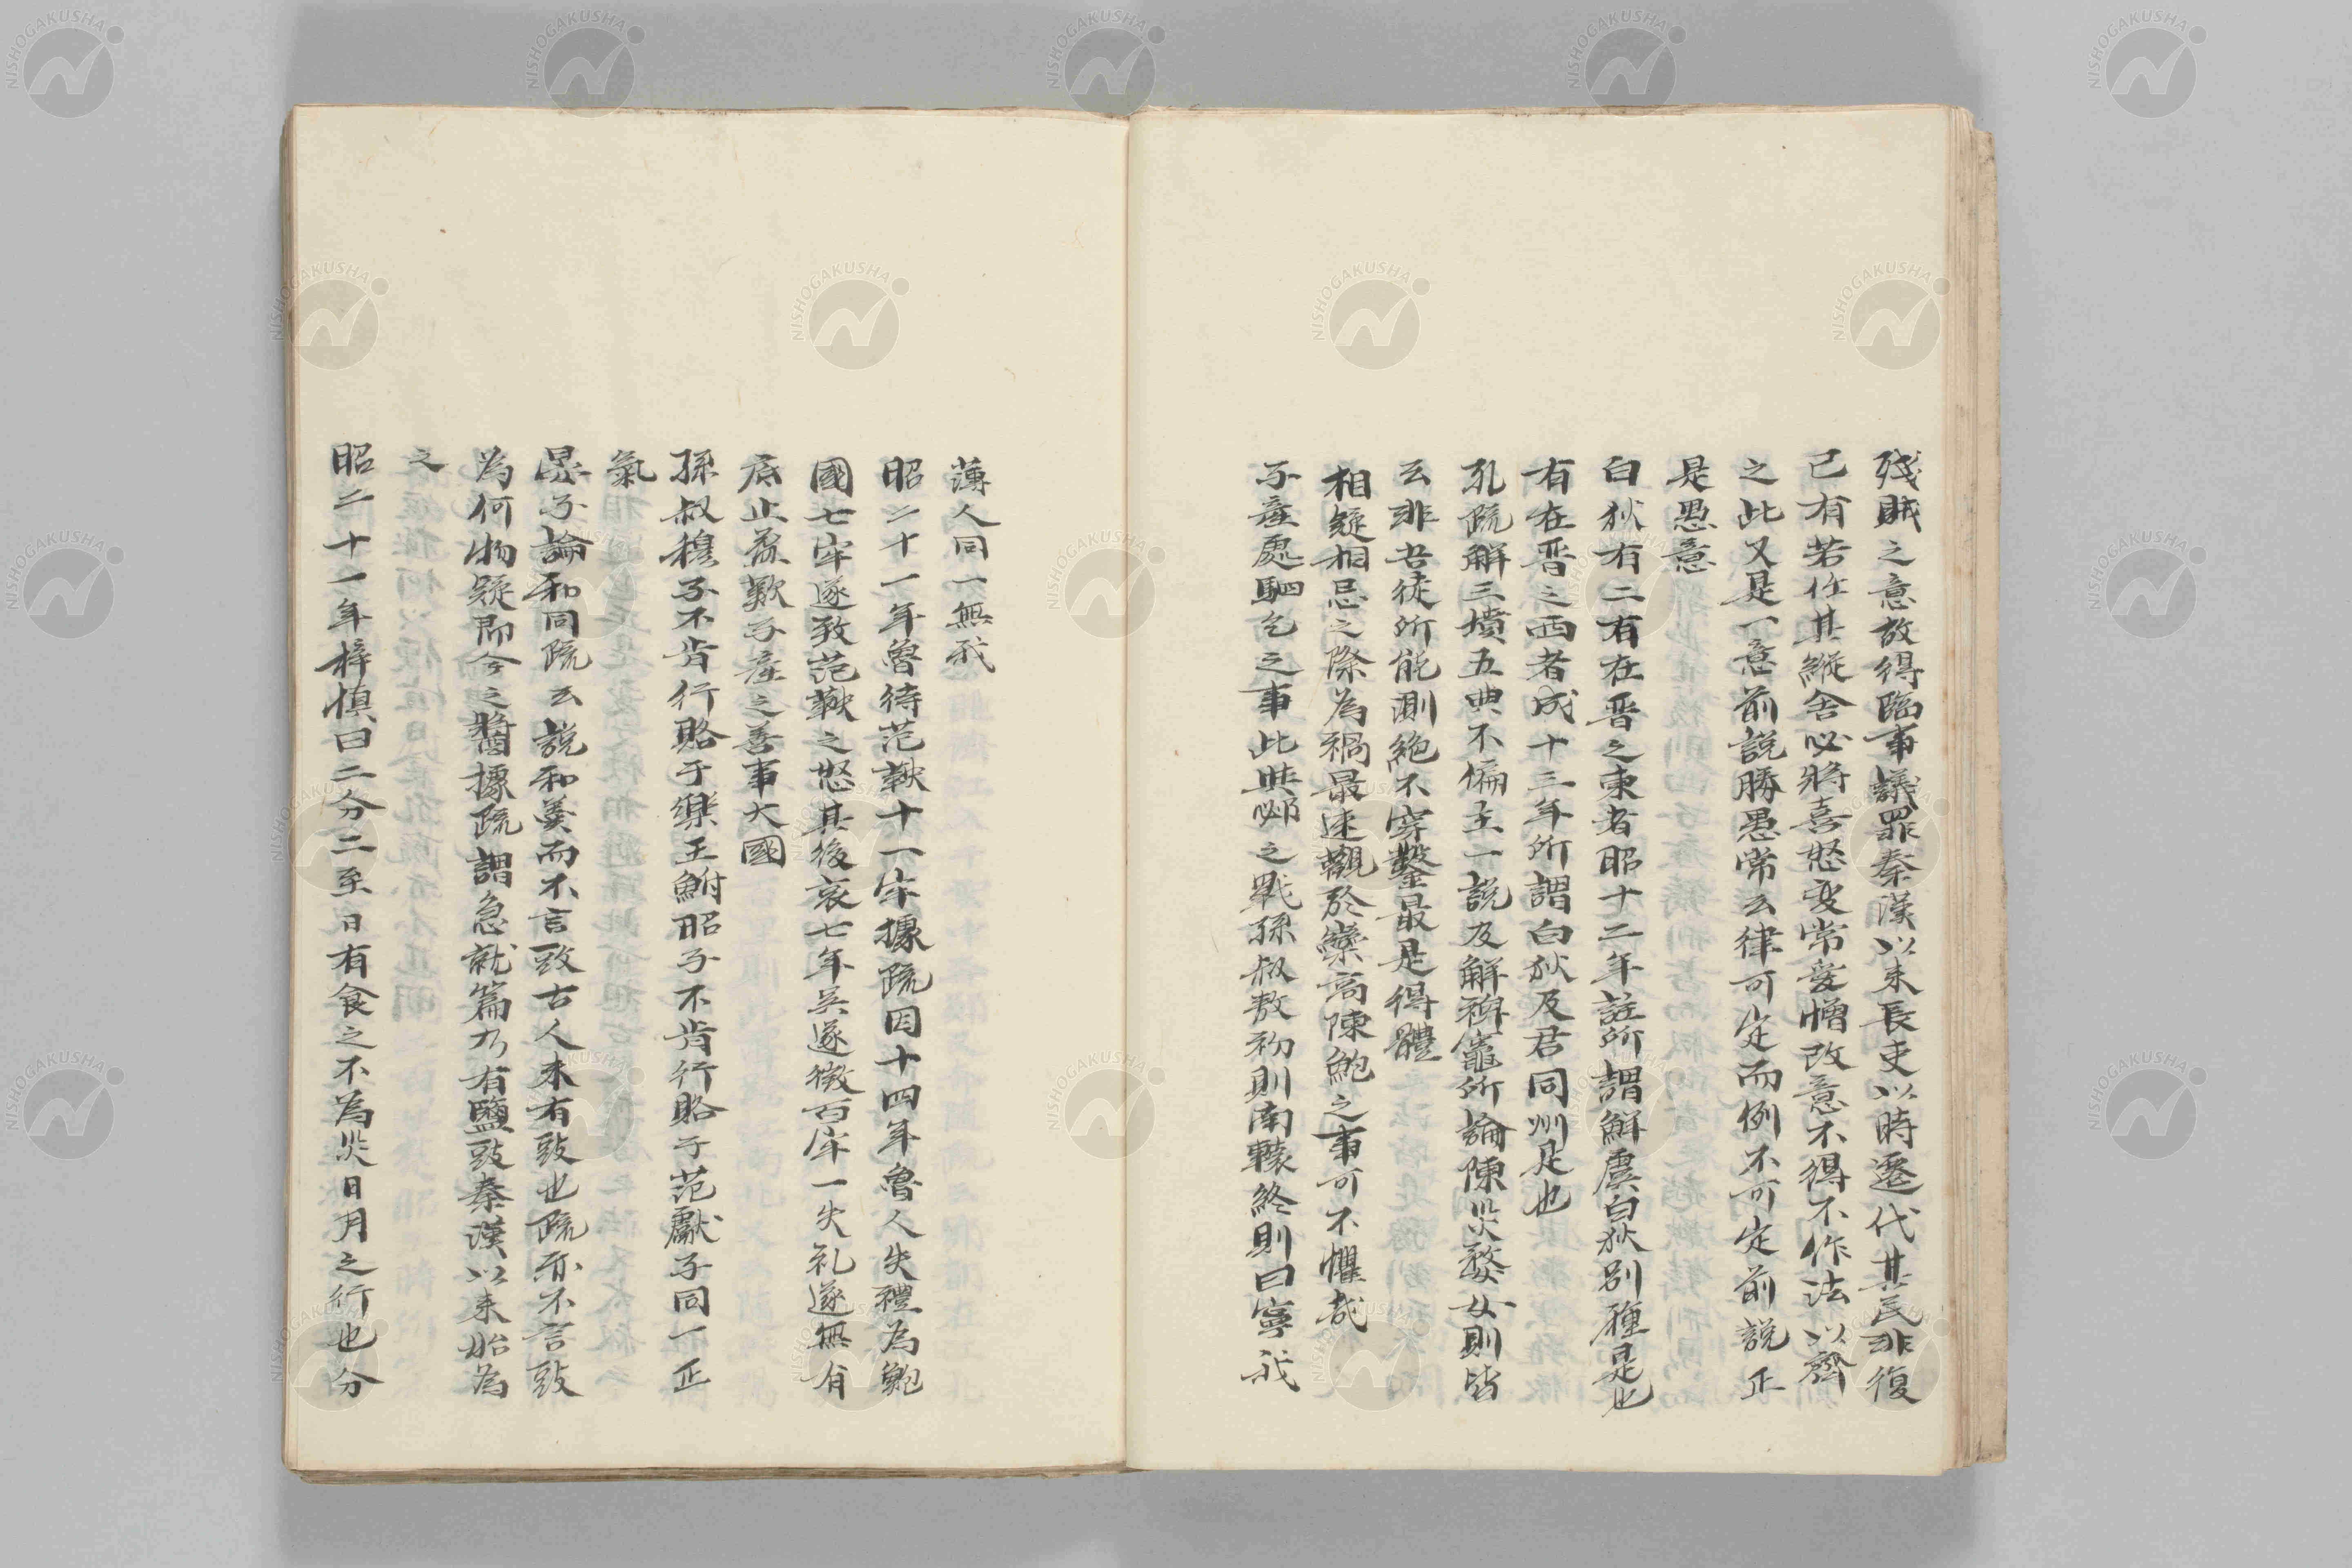 殘賊之意故得臨事議罪秦漢以来長吏以時遷代其民非復
己有若任其縱舍必將喜怒変常愛憎改意不得不作法以齊
之此又是一意前説勝愚常云律可定而例不可定前説正
是愚意
白狄有二有在晋之東者昭十二年註所謂鮮虞白狄别種是也
有在晋之西者成十三年所謂白狄及君同州是也
孔疏解三墳五典不偏主一説及解裨竈所論陳災婺女則皆
云非吾徒所能測絶不穿鑿最是得體
相疑相忌之際為禍最速觀於欒高陳鮑之事可不懼哉
子産處駟乞之事此與邲之戰孫叔敖初則南轅終則曰寧我
薄人同一無我
昭二十一年魯待范鞅十一牢據疏因十四年魯人失禮為鮑
國七牢遂致范鞅之怒其後哀七年吴遂徴百牢一失礼遂無有
底止益歎子産之善事大國
孫叔穆子不肯行賂于樂王鮒昭子不肯行賂于范獻子同一正
氣
晏子論和同疏云説和羮而不言豉古人未有豉也疏亦不言豉
為何物疑即今之醬據疏謂急就篇乃有鹽豉秦漢以来始為
之
昭二十一年梓慎曰二分二至日有食之不為災日月之行也分
NISHOGAKUSHA